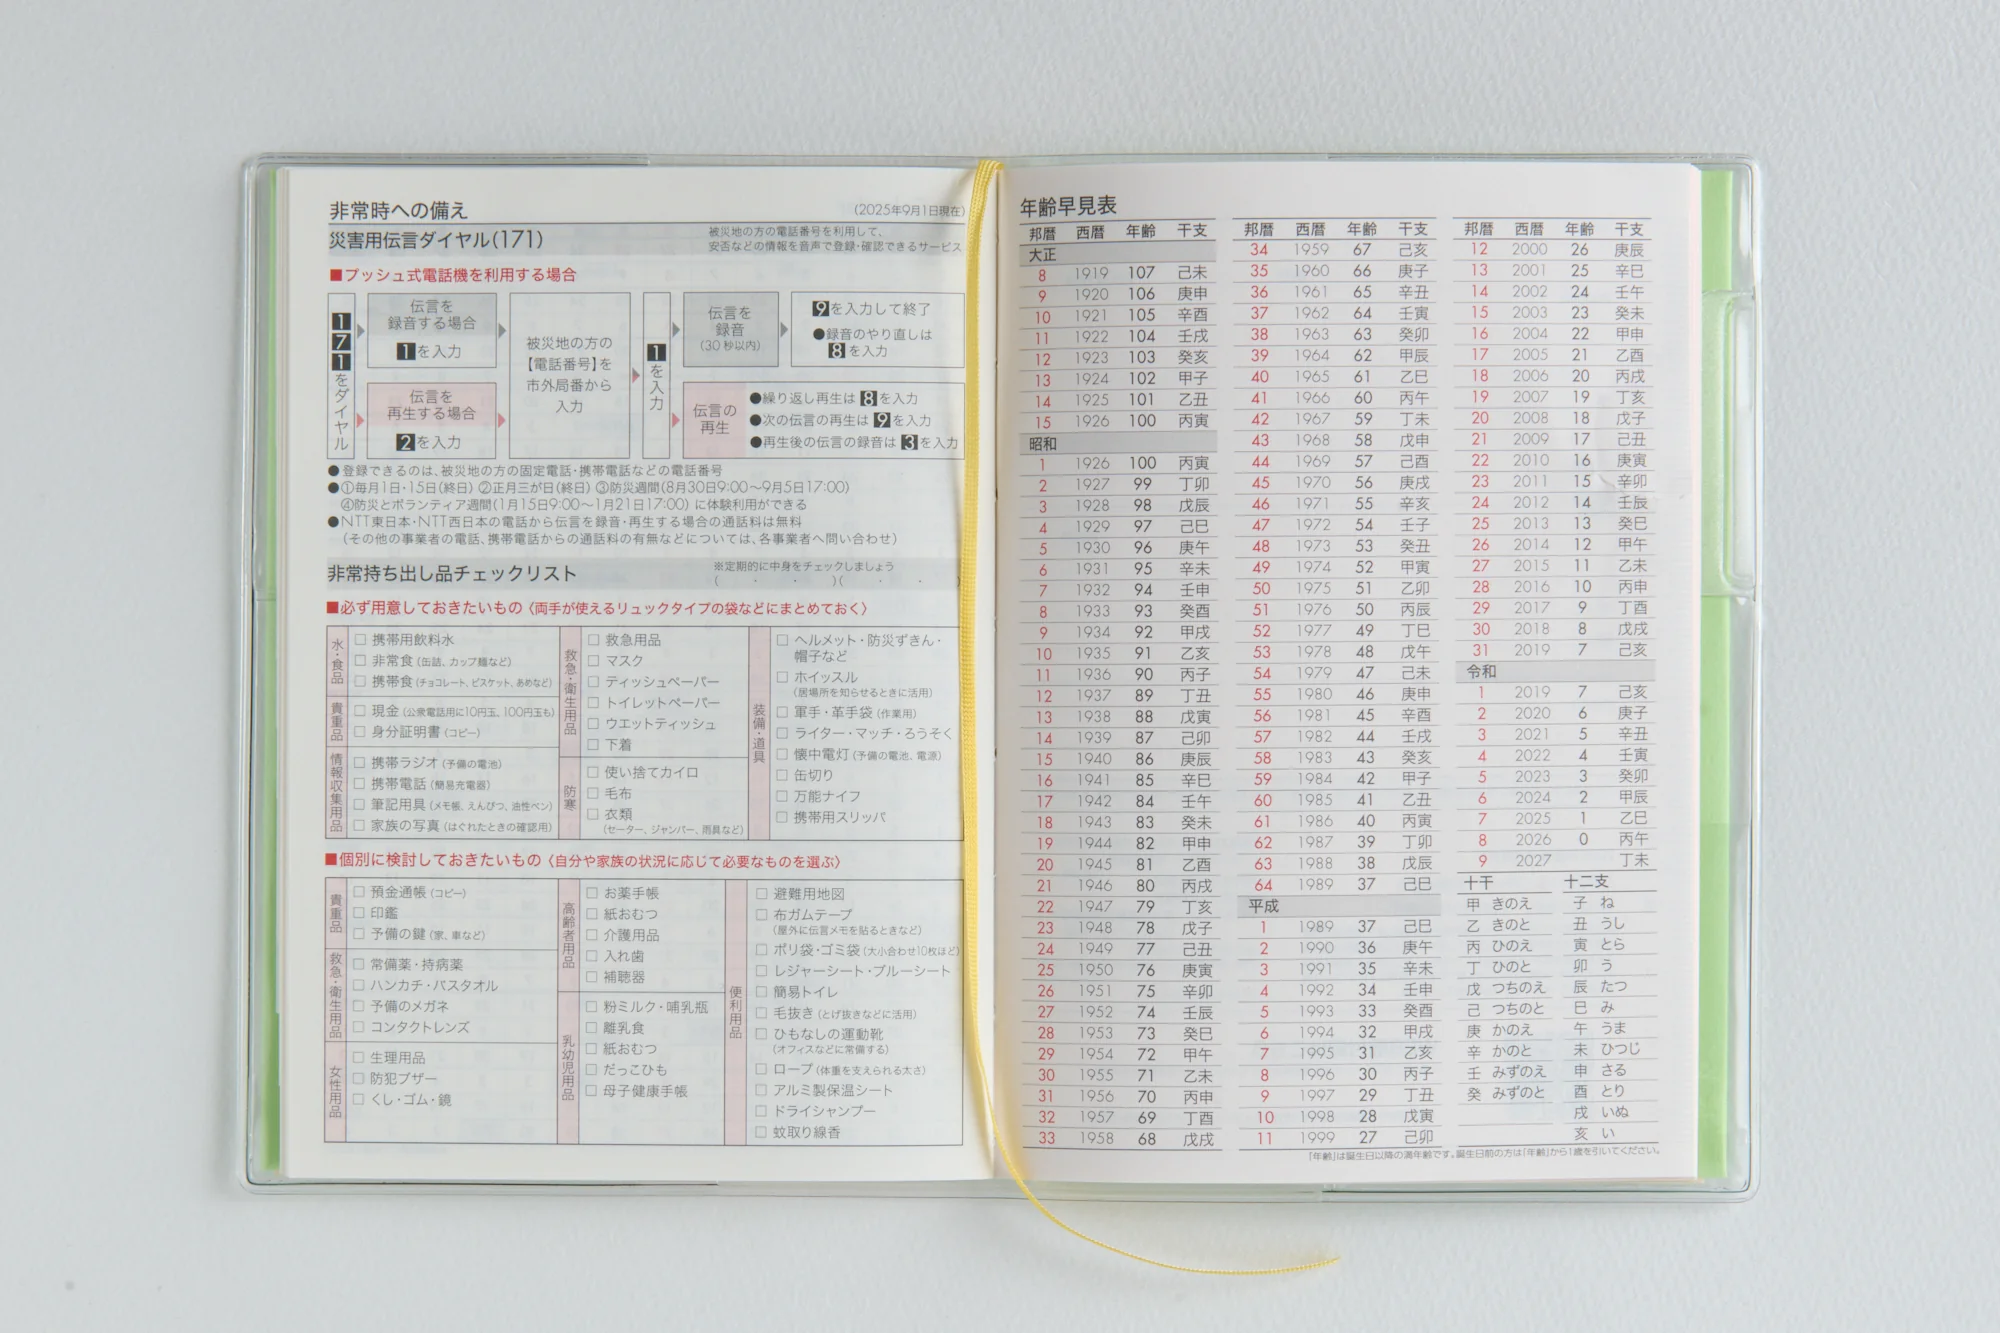 非常時への備え
(2025年9月1日現在)
災害用伝言ダイヤル(171)
被災地の方の電話番号を利用して、
安否などの情報を音声で登録・確認できるサービス
■プッシュ式電話機を利用する場合
171をダイヤル
伝言を
録音する場合
1を入力
伝言を
再生する場合
2を入力
被災地の方の
【電話番号】を
市外局番から
入力
1を入力
伝言を
録音
(30秒以内)
9を入力して終了
●録音のやり直しは
8を入力
伝言の
再生
●繰り返し再生は8を入力
●次の伝言の再生は9を入力
●再生後の伝言の録音は3を入力
●登録できるのは、被災地の方の固定電話・携帯電話などの電話番号
●①毎月1日・15日(終日) ②正月三が日(終日) ③防災週間(8月30日9:00〜9月5日17:00)
④防災とボランティア週間(1月15日9:00〜1月21日17:00) に体験利用ができる
●NTT東日本・NTT西日本の電話から伝言を録音・再生する場合の通話料は無料
(その他の事業者の電話、携帯電話からの通話料の有無などについては、各事業者へ問い合わせ)
非常持ち出し品チェックリスト
※定期的に中身をチェックしましょう
( ・ ・ )( ・ ・ )
■必ず用意しておきたいもの〈両手が使えるリュックタイプの袋などにまとめておく〉
水・食品
□ 携帯用飲料水
□ 非常食(缶詰、カップ麺など)
□ 携帯食(チョコレート、ビスケット、あめなど)
貴重品
□ 現金(公衆電話用に10円玉、100円玉も)
□ 身分証明書(コピー)
情報収集用品
□ 携帯ラジオ(予備の電池)
□ 携帯電話(簡易充電器)
□ 筆記用具(メモ帳、えんぴつ、油性ペン)
□ 家族の写真(はぐれたときの確認用)
救急・衛生用品
□ 救急用品
□ マスク
□ ティッシュペーパー
□ トイレットペーパー
□ ウエットティッシュ
□ 下着
防寒
□ 使い捨てカイロ
□ 毛布
□ 衣類
(セーター、ジャンパー、雨具など)
装備・道具
□ ヘルメット・防災ずきん・
帽子など
□ ホイッスル
(居場所を知らせるときに活用)
□ 軍手・革手袋(作業用)
□ ライター・マッチ・ろうそく
□ 懐中電灯(予備の電池、電源)
□ 缶切り
□ 万能ナイフ
□ 携帯用スリッパ
■個別に検討しておきたいもの〈自分や家族の状況に応じて必要なものを選ぶ〉
貴重品
□ 預金通帳(コピー)
□ 印鑑
□ 予備の鍵(家、車など)
救急・衛生用品
□ 常備薬・持病薬
□ ハンカチ・バスタオル
□ 予備のメガネ
□ コンタクトレンズ
女性用品
□ 生理用品
□ 防犯ブザー
□ くし・ゴム・鏡
高齢者用品
□ お薬手帳
□ 紙おむつ
□ 介護用品
□ 入れ歯
□ 補聴器
乳幼児用品
□ 粉ミルク・哺乳瓶
□ 離乳食
□ 紙おむつ
□ だっこひも
□ 母子健康手帳
便利用品
□ 避難用地図
□ 布ガムテープ
(屋外に伝言メモを貼るときなど)
□ ポリ袋・ゴミ袋(大小合わせ10枚ほど)
□ レジャーシート・ブルーシート
□ 簡易トイレ
□ 毛抜き(とげ抜きなどに活用)
□ ひもなしの運動靴
(オフィスなどに常備する)
□ ロープ(体重を支えられる太さ)
□ アルミ製保温シート
□ ドライシャンプー
□ 蚊取り線香
年齢早見表
邦暦 西暦 年齢 干支
大正
8 1919 107 己未
9 1920 106 庚申
10 1921 105 辛酉
11 1922 104 壬戌
12 1923 103 癸亥
13 1924 102 甲子
14 1925 101 乙丑
15 1926 100 丙寅
昭和
1 1926 100 丙寅
2 1927 99 丁卯
3 1928 98 戊辰
4 1929 97 己巳
5 1930 96 庚午
6 1931 95 辛未
7 1932 94 壬申
8 1933 93 癸酉
9 1934 92 甲戌
10 1935 91 乙亥
11 1936 90 丙子
12 1937 89 丁丑
13 1938 88 戊寅
14 1939 87 己卯
15 1940 86 庚辰
16 1941 85 辛巳
17 1942 84 壬午
18 1943 83 癸未
19 1944 82 甲申
20 1945 81 乙酉
21 1946 80 丙戌
22 1947 79 丁亥
23 1948 78 戊子
24 1949 77 己丑
25 1950 76 庚寅
26 1951 75 辛卯
27 1952 74 壬辰
28 1953 73 癸巳
29 1954 72 甲午
30 1955 71 乙未
31 1956 70 丙申
32 1957 69 丁酉
33 1958 68 戊戌
邦暦 西暦 年齢 干支
34 1959 67 己亥
35 1960 66 庚子
36 1961 65 辛丑
37 1962 64 壬寅
38 1963 63 癸卯
39 1964 62 甲辰
40 1965 61 乙巳
41 1966 60 丙午
42 1967 59 丁未
43 1968 58 戊申
44 1969 57 己酉
45 1970 56 庚戌
46 1971 55 辛亥
47 1972 54 壬子
48 1973 53 癸丑
49 1974 52 甲寅
50 1975 51 乙卯
51 1976 50 丙辰
52 1977 49 丁巳
53 1978 48 戊午
54 1979 47 己未
55 1980 46 庚申
56 1981 45 辛酉
57 1982 44 壬戌
58 1983 43 癸亥
59 1984 42 甲子
60 1985 41 乙丑
61 1986 40 丙寅
62 1987 39 丁卯
63 1988 38 戊辰
64 1989 37 己巳
平成
1 1989 37 己巳
2 1990 36 庚午
3 1991 35 辛未
4 1992 34 壬申
5 1993 33 癸酉
6 1994 32 甲戌
7 1995 31 乙亥
8 1996 30 丙子
9 1997 29 丁丑
10 1998 28 戊寅
11 1999 27 己卯
邦暦 西暦 年齢 干支
12 2000 26 庚辰
13 2001 25 辛巳
14 2002 24 壬午
15 2003 23 癸未
16 2004 22 甲申
17 2005 21 乙酉
18 2006 20 丙戌
19 2007 19 丁亥
20 2008 18 戊子
21 2009 17 己丑
22 2010 16 庚寅
23 2011 15 辛卯
24 2012 14 壬辰
25 2013 13 癸巳
26 2014 12 甲午
27 2015 11 乙未
28 2016 10 丙申
29 2017 9 丁酉
30 2018 8 戊戌
31 2019 7 己亥
令和
1 2019 7 己亥
2 2020 6 庚子
3 2021 5 辛丑
4 2022 4 壬寅
5 2023 3 癸卯
6 2024 2 甲辰
7 2025 1 乙巳
8 2026 0 丙午
9 2027 丁未
十干
甲 きのえ
乙 きのと
丙 ひのえ
丁 ひのと
戊 つちのえ
己 つちのと
庚 かのえ
辛 かのと
壬 みずのえ
癸 みずのと
十二支
子 ね
丑 うし
寅 とら
卯 う
辰 たつ
巳 み
午 うま
未 ひつじ
申 さる
酉 とり
戌 いぬ
亥 い
「年齢」は誕生日以降の満年齢です。誕生日前の方は「年齢」から1歳を引いてください。